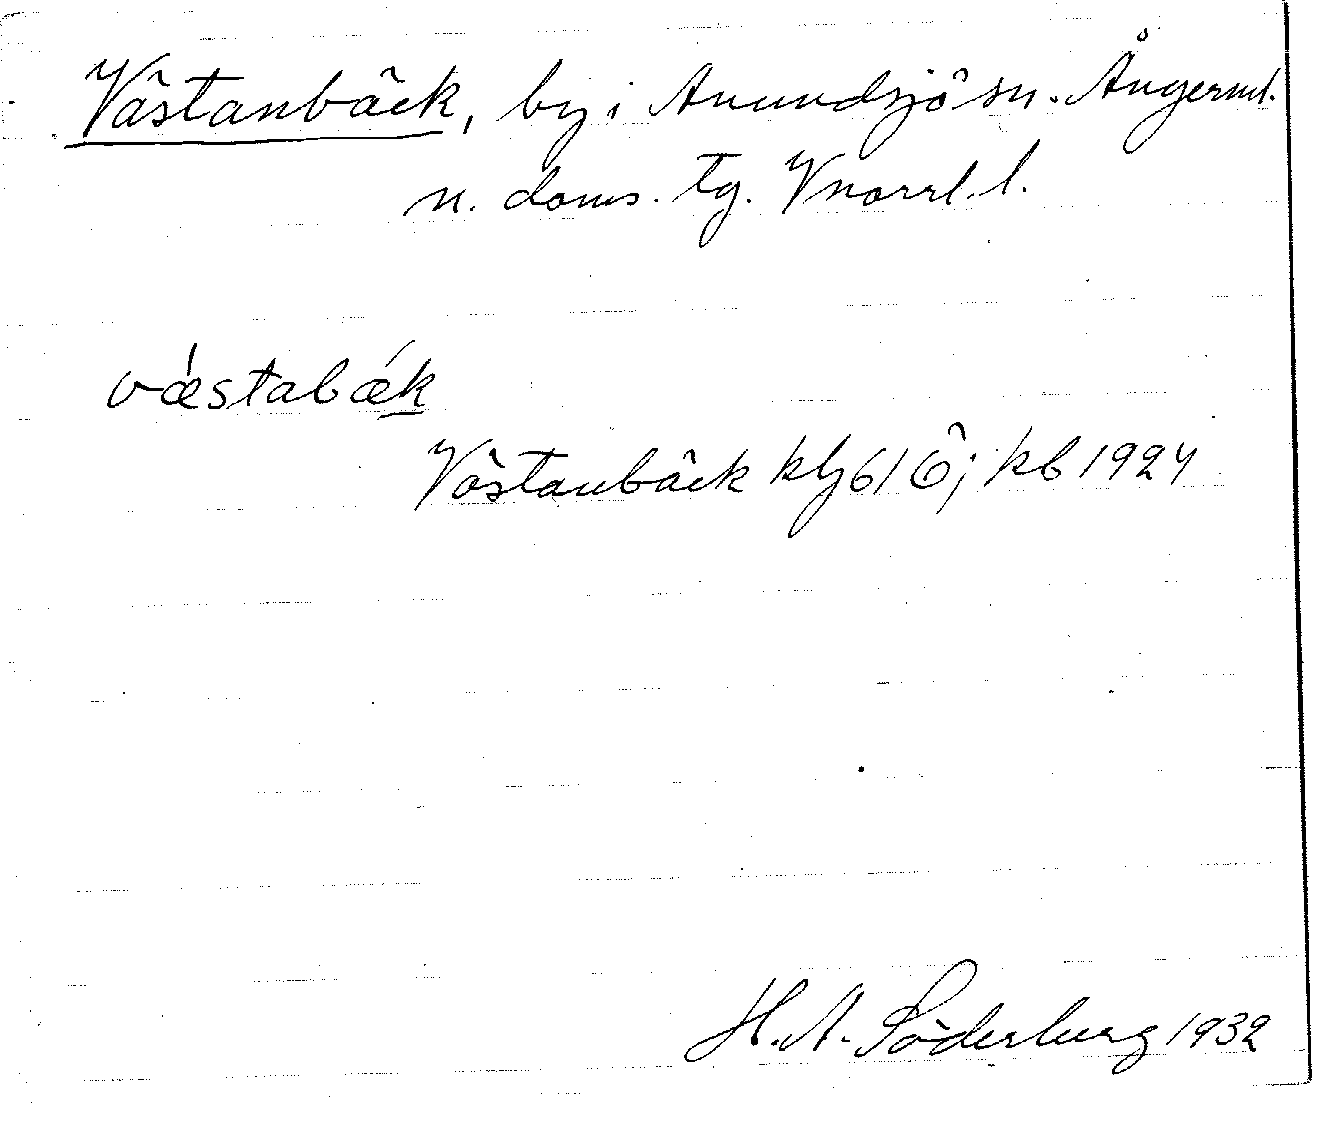 Västanbäck, by i Anundsjö sn. Ångerml.
n. doms. tg. Vnorrl. l.
væ̀stabǽk
Västanbäck klj 61 Ö; kb 1924
H. A. Söderberg 1932